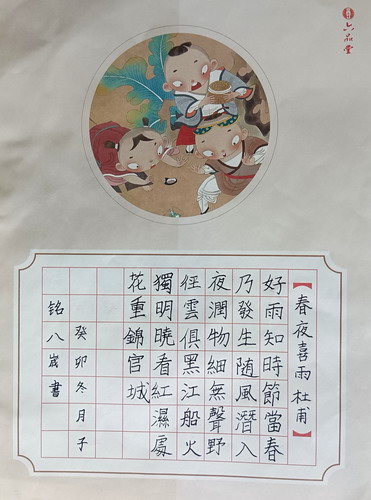 六品堂
【春夜喜雨 杜甫】
好雨知時節當春
乃發生随風潛入
夜潤物細無聲野
径雲俱黑江船火
獨明曉看紅濕處
花重錦官城
癸卯冬月子
铭八歲書